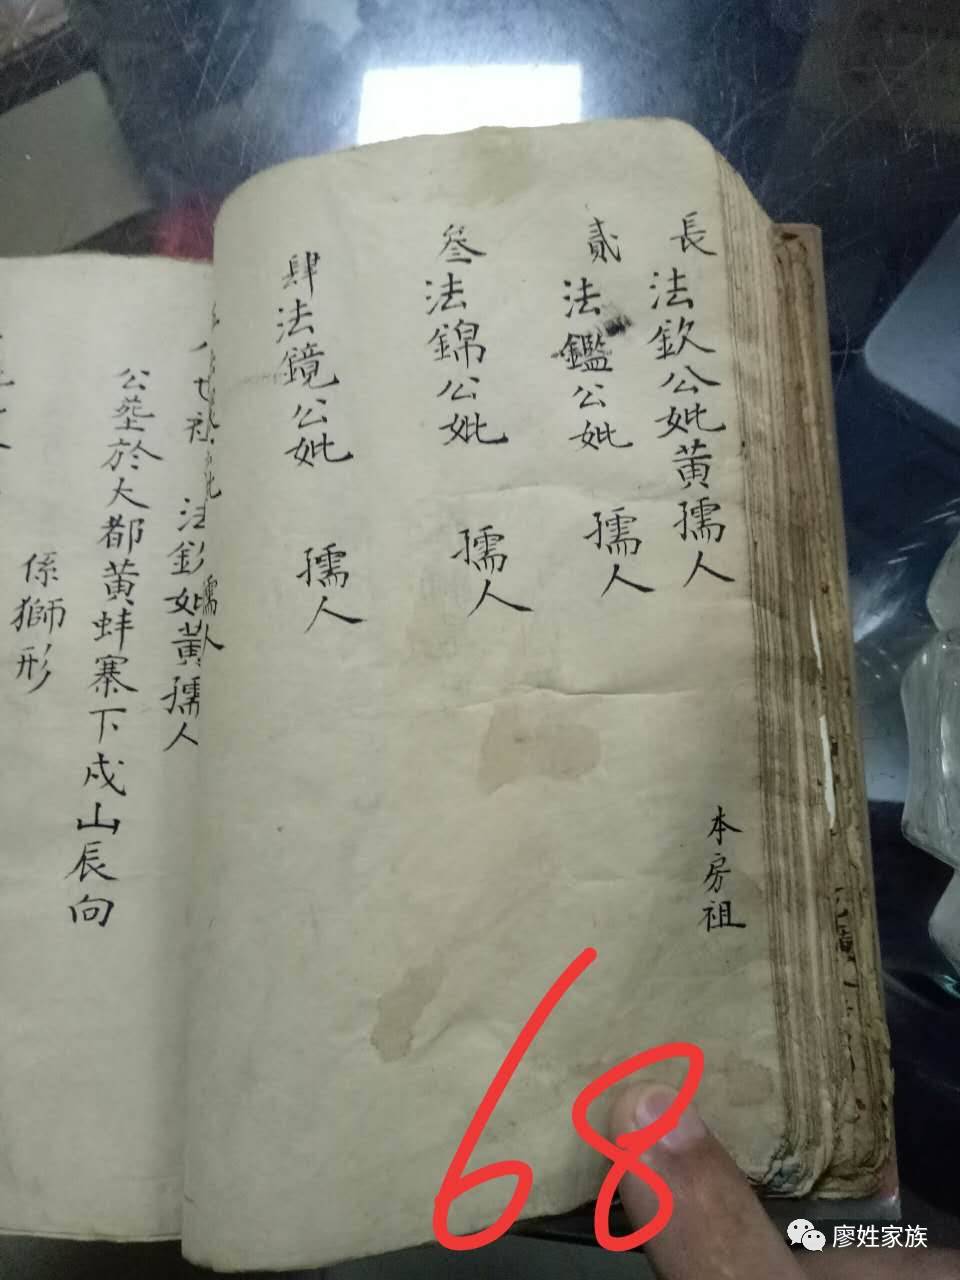 長法欽公妣黄孺人
本房祖
貳法鑑公妣 孺人
叄法錦公妣 孺人
肆法鏡公妣 孺人
法欽妣黄孺人
公葬於大都黄蚌寨下戍山辰向
係獅形
68
廖姓家族